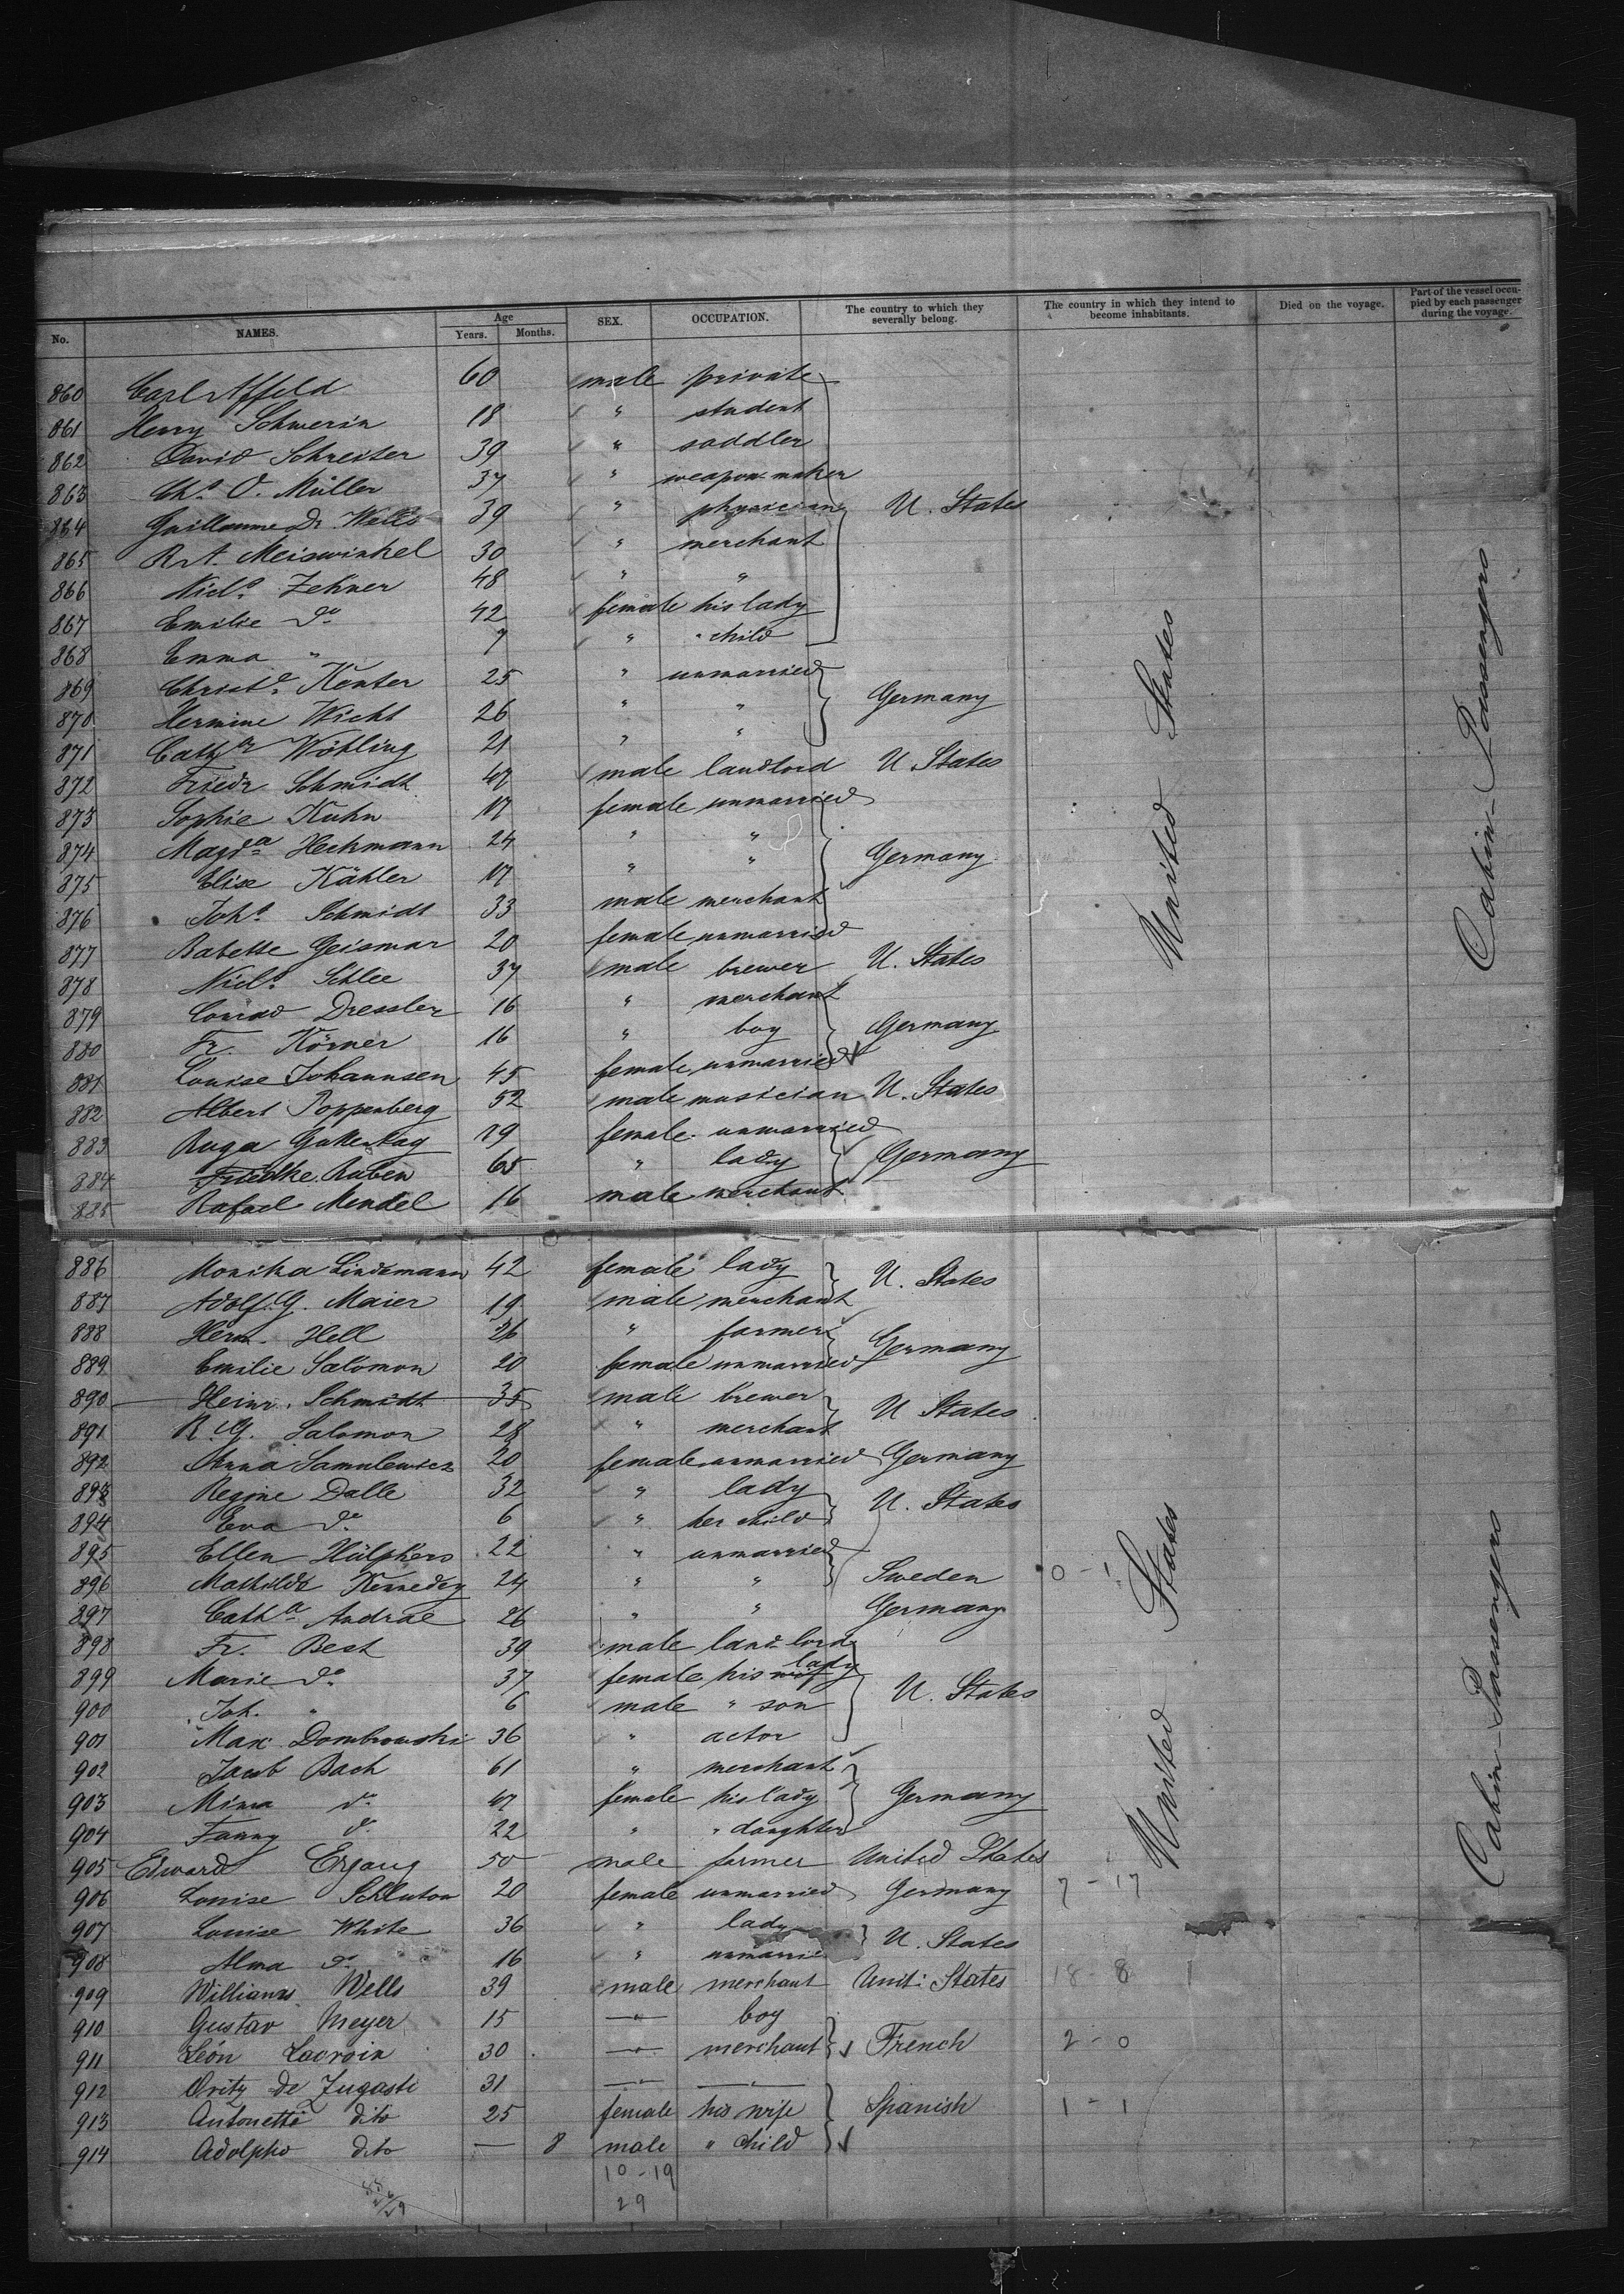 No. NAMES. Age Years. Months. SEX. OCCUPATION. The country to which they severally belong. The country in which they intend to become inhabitants. Died on the voyage. Part of the vessel occupied by each passenger during the voyage.
860 Carl Affeld 60 male private
861 Henry Schwerin 18 " student
862 David Schreiter 39 " saddler
863 Chs. O. Müller 37 " weapon maker
864 Guillaume Dr. Walls 39 " physician U. States
865 R. A. Meiswinkel 30 " merchant
866 Nicls. Zehner 48 " "
867 Emilie do 42 female his lady
868 Emma " 7 " " child
869 Christe. Kenter 25 " unmarried
870 Hermine Wicht 26 " " Germany
871 Cathr Wöhling 21 " "
872 Friedr Schmidt 47 male landlord U. States
873 Sophie Kuhn 17 female unmarried
874 Magda Heckmann 24 " "
875 Elise Kähler 17 " " Germany
876 Johs. Schmidt 33 male merchant
877 Babette Geismar 20 female unmarried
878 Nicls. Schlee 37 male brewer U. States
879 Conrad Dressler 16 " merchant
880 Fr. Körner 16 " boy Germany
881 Louise Johannsen 45 female unmarried
882 Albert Poppenberg 52 male musician U. States
883 Ruga Guttentag 19 female unmarried
884 Friedke. Ruben 65 " lady Germany
885 Rafael Mendel 16 male merchant
886 Monika Lindemann 42 female lady U. States
887 Adolf. G. Maier 19 male merchant
888 Herm. Hell 26 " farmer Germany
889 Emilie Salomon 20 female unmarried
890 Heinr. Schmidt 35 male brewer U. States
891 R. G. Salomon 28 " merchant
892 Anna Samulewicz 20 female unmarried Germany
893 Regine Dalle 32 " lady U. States
894 Eva do 6 " her child
895 Ellen Hülpkers 22 " unmarried
896 Mathilde Kennedey 24 " " Sweden 0 - 1
897 Catha Andrae 26 " " Germany
898 Fr. Best 39 male land lord
899 Marie do 37 female his wife lady
900 Joh. " 6 male " son U. States
901 Max Dombrowski 36 " actor
902 Jacob Bach 61 " merchant
903 Mina do 47 female his lady Germany
904 Fanny do 22 " " daughter
905 Edward Ergang 50 male farmer United States
906 Louise Schluton 20 female unmarried Germany 7 - 17
907 Louise White 36 " lady U. States
908 Alma do 16 " unmarrie
909 Williams Wells 39 male merchant Unit: States 18 - 8
910 Gustav Meyer 15 " boy
911 Léon Lacroix 30 " merchant French 2 - 0
912 Oritz de Zugasti 31 " "
913 Antonette dito 25 female his wife Spanish 1 - 1
914 Adolpho dito — 8 male " child
10 - 19
29
United States
Cabin-Passengers
United States
Cabin-Passengers